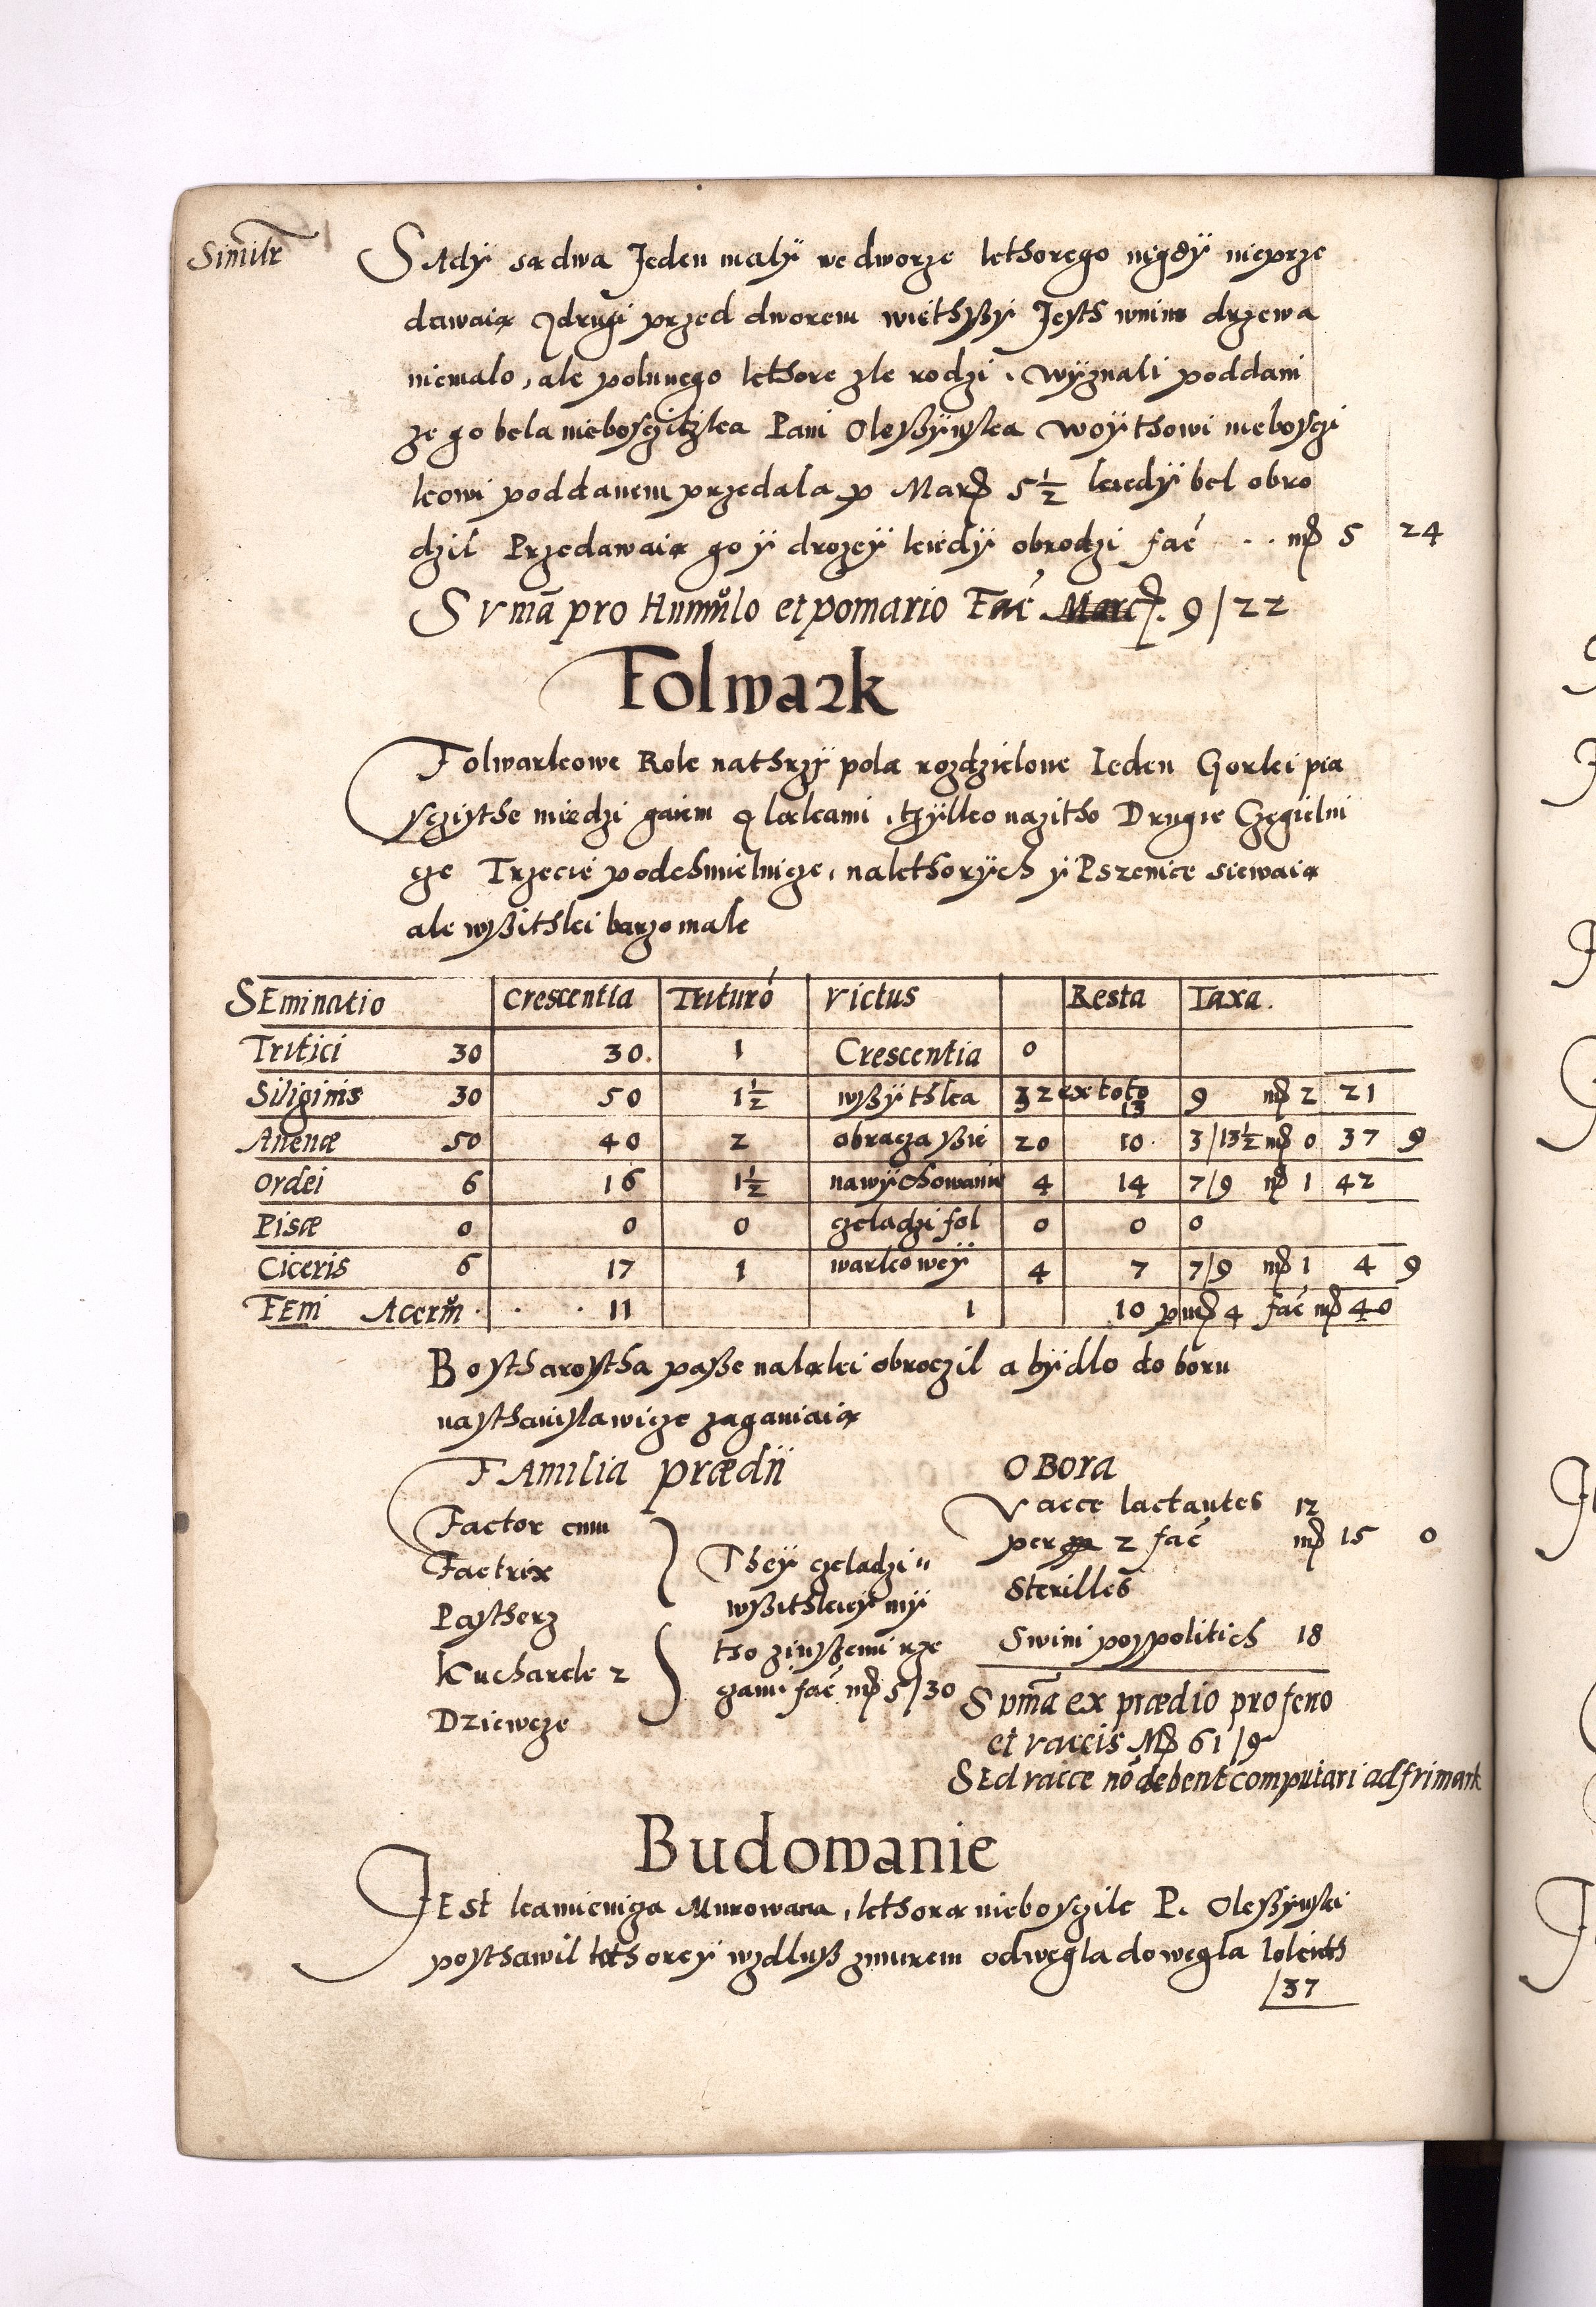 Similr
SAdÿ są dwa Jeden malÿ we dworze kthorego nigdÿ nieprze
dawaią Zdrugi przed dworem wiethssÿ Jesth wnim drzewa
niemalo, ale polnnego kthore zle rodzi. Wÿznali poddani
ze go bela nieboscziczka Pani Olessÿnska Woÿthowi niebosczi
kowi poddanem przedala p Marc 5 1/2 kiedÿ bel obro
dzil Przedawaią go ÿ drozeÿ kiedÿ obrodzi fac . . mc 5 24
SVma pro Humulo et pomario Fac Marc. 9/22
Folwark
Folwarkowe Role nathrzÿ pola rozdzielone Ieden Gorki pia
sczisthe miedzi gaiem ą ląkami, tÿlko nazitho Drugie Czegielni
cze Trzecie podchmielnicze, nakthorÿch ÿ Pszenice siewaią
ale wssithki barzo male
SEminatio Crescentia Trituro Victus Resta Taxa.
Tritici 30 30. 1 Crescentia 0
Siliginis 30 50 1 1/2 wssÿthka 32 ex toto 13 9 mc 2 21
Auenæ 50 40 2 obracza ssie 20 10. 3/13 1/2 mc 0 37 9
Ordei 6 16 1 1/2 nawÿchowanie 4 14 7/9 mc 1 42
Pisæ 0 0 0 czeladzi fol 0 0 0
Ciceris 6 17 1 warkoweÿ 4 7 7/9 mc 1 4 9
FEni Acerum . . . 11 1 10 p mc 4 fac mc 40
Bo stharostha passe naląki obroczil a bÿdlo do boru
nasthanislawicze zaganiaią
FAmilia prædii
Factor cum
Factrix
Pastherz
Kucharek 2
Dziewcze
Theÿ czeladzi
wssithkieÿ mÿ
tho zinssemi rze
czami fac mc 5/30
OBora
Vacce lactantes 12
per 2 fac mc 15 0
Sterilles
Swini pospolitich 18
SVma ex prædio pro feno
et vaccis Mc 61/9
SEd vacce no debent computari ad frimark
Budowanie
JEst kamienica Murowana, kthorą nieboszcik P. Olessÿnski
posthawil kthoreÿ wzdluss zmurem odwegla dowegla lokieth
/37